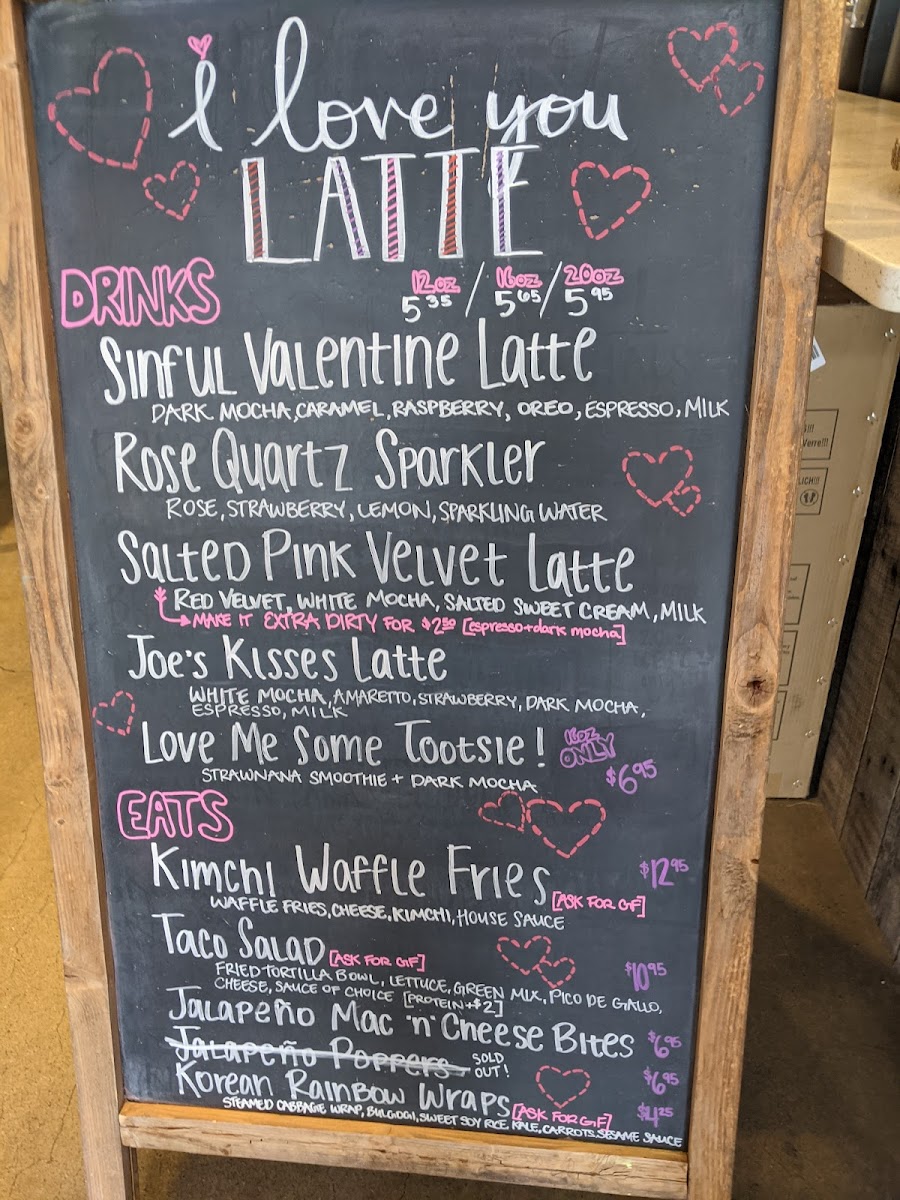 i love you
LATTE
DRINKS
12oz / 16oz / 20oz
5.35 / 5.65 / 5.95
Sinful Valentine Latte
DARK MOCHA, CARAMEL, RASPBERRY, OREO, ESPRESSO, MILK
Rose Quartz Sparkler
ROSE, STRAWBERRY, LEMON, SPARKLING WATER
Salted Pink Velvet Latte
RED VELVET, WHITE MOCHA, SALTED SWEET CREAM, MILK
MAKE IT EXTRA DIRTY FOR $2.50 [espresso+dark mocha]
Joe's Kisses Latte
WHITE MOCHA, AMARETTO, STRAWBERRY, DARK MOCHA,
ESPRESSO, MILK
Love Me Some Tootsie! 16oz ONLY $6.95
STRAWNANA SMOOTHIE + DARK MOCHA
EATS
Kimchi Waffle Fries [ASK FOR GF] $12.95
WAFFLE FRIES, CHEESE, KIMCHI, HOUSE SAUCE
Taco Salad [ASK FOR GF] $10.95
FRIED TORTILLA BOWL, LETTUCE, GREEN MIX, PICO DE GALLO,
CHEESE, SAUCE OF CHOICE [PROTEIN+$2]
Jalapeño Mac 'n' Cheese Bites $6.95
Jalapeño Poppers SOLD OUT! $6.95
Korean Rainbow Wraps [ASK FOR GF] $4.25
STEAMED CABBAGE WRAP, BULGOGI, SWEET SOY RICE, KALE, CARROTS, SESAME SAUCE